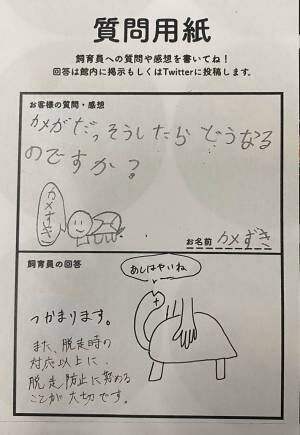 質問用紙
飼育員への質問や感想を書いてね！
回答は館内に掲示もしくはTwitterに投稿します。
お客様の質問・感想
カメがだっそうしたらどうなる
のですか？
カメずき
お名前 カメずき
飼育員の回答
あしはやいね
つかまります。
また、脱走時の
対応以上に、
脱走防止に努める
ことが大切です。